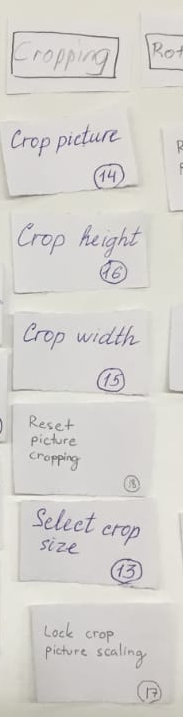 Cropping
Rot
Crop picture
14
Crop height
16
Crop width
15
Reset
picture
cropping
18
Select crop
size
13
Lock crop
picture scaling
17